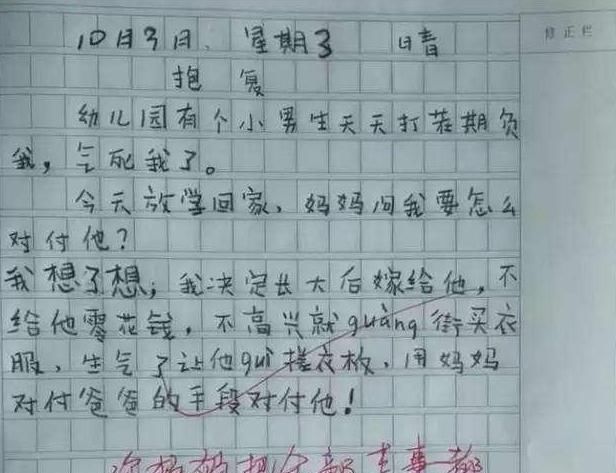 10月3日、星期3 晴
抱复
幼儿园有个小男生天天打茬期负
我，气死我了。
今天放学回家、妈妈问我要怎么
对付他？
我想了想，我决定长大后嫁给他，不
给他零花钱，不高兴就guàng街买衣
服、生气了让他guì搓衣板、用妈妈
对付爸爸的手段对付他！
修正栏